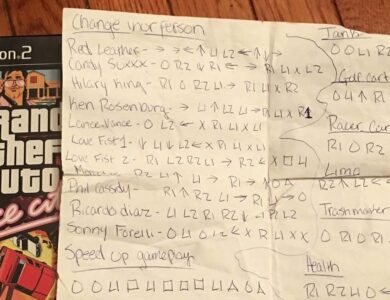 Change into person
Red Leather - → → ← ↑ ⊔ L2 ← ↑ ↓ →
Candy Suxxx - O R2 ↓ R1 ← → R1 L1 X L2
Hilary King - R1 O R2 L1 → R1 L1 X R2
Ken Rosenberg - → L1 ↑ L2 L1 → R1 L1 X R1
Lance Vance - O L2 ← X R1 L1 X L1
Love Fist 1 - ↓ L1 ↓ L2 ← X R1 L1 X X
Love Fist 2 - R1 L2 R2 L1 → R2 ← X □ L1
R2 L1 ↑ L1 → R1 → R1 X O △
Phil Cassidy - → R1 ↑ R2 L1 → R1 → R1 ↓ → O
Ricardo diaz - L1 L2 R1 R2 ↓ L1 R2 L2
Sonny Forelli - O L1 O L2 ← X R1 L1 X X
Speed up gameplay
O O L1 □ L1 □ □ □ L1 △ □ △
Tank
O O L1 O
Golf cart
O L1 ↑ R1
Racer car
R1 O R2
Limo
R2 ↑ L2
Trashmaster
O R1 O R1
Health
R1 R2 L1 O
on.2
rand
heft
uto
ce city